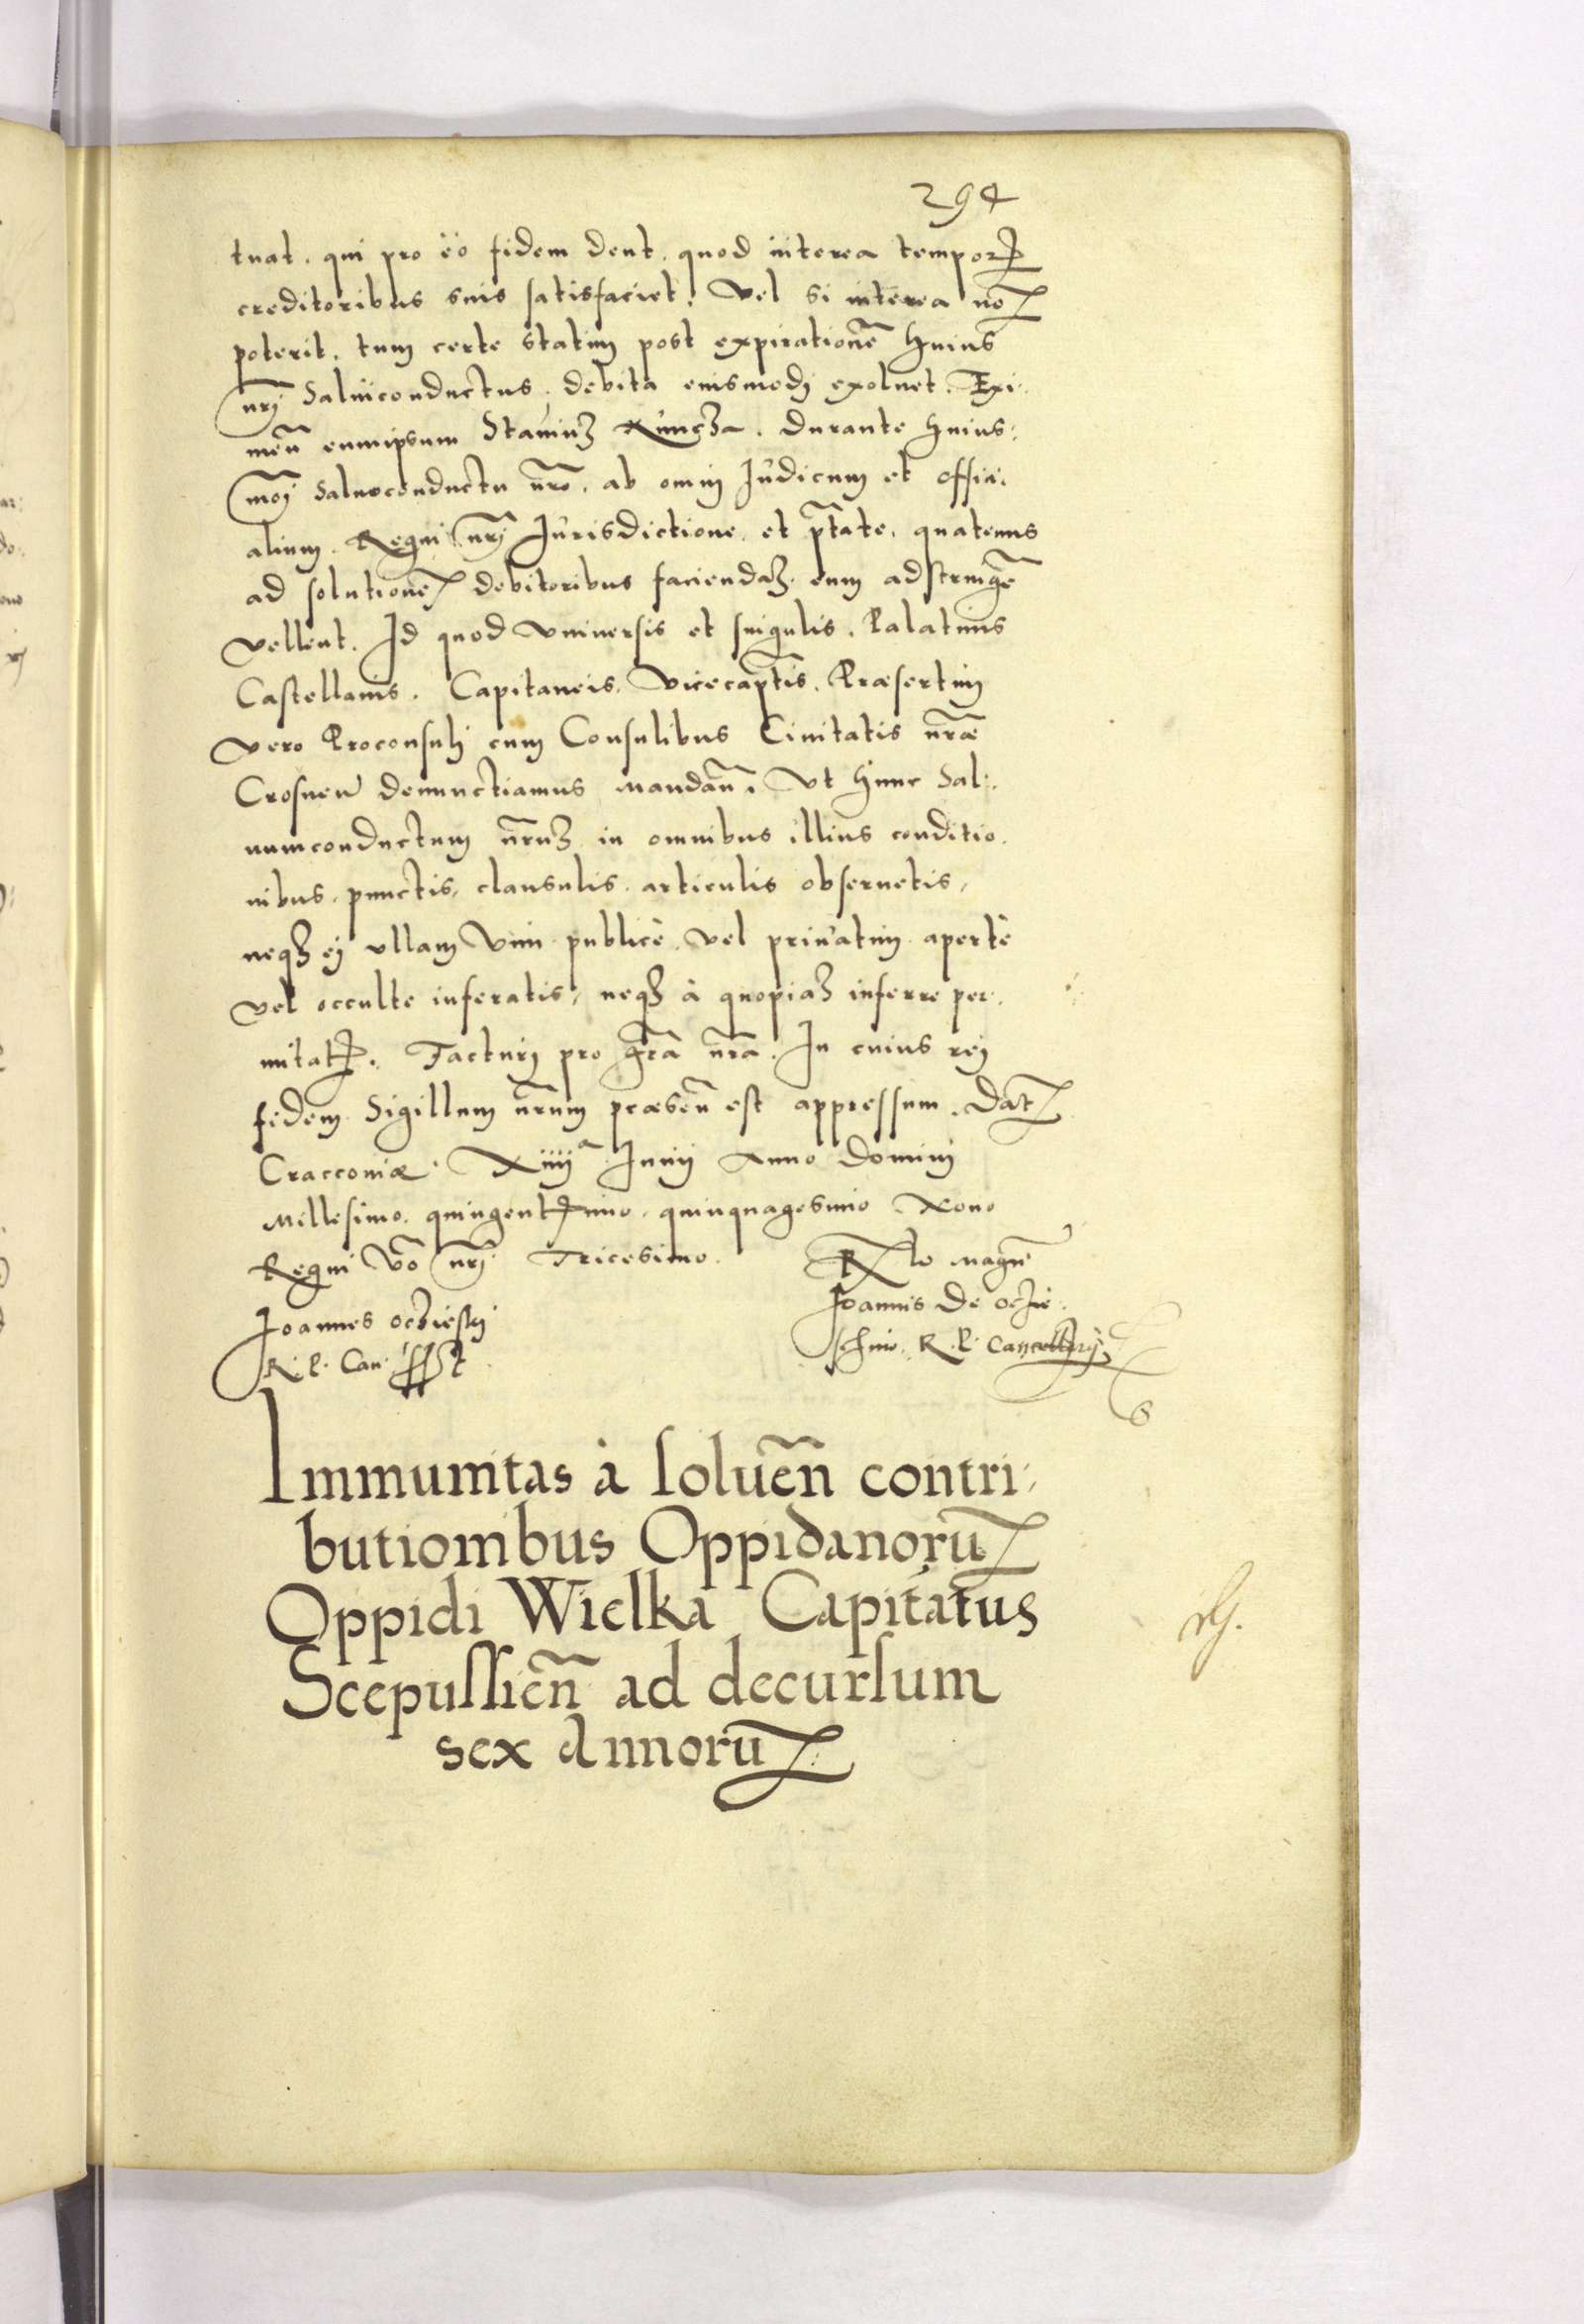 294
tuat. qui pro eo fidem dent. quod interea tempor
creditoribus suis satisfaciet. Vel si interea no
poterit. tum certe statim post expirationē huius
nrj Saluiconductus. debita eiusmodj exoluet. Exi:
men̄ eumipsum Stanius durante huius:
moj Saluoconductu nro. ab omnj Iudicum et offici:
alium. Regni nrj Iurisdictione et ptāte, quatenus
ad solutionē debitoribus faciendaz. eum adstringē
vellent. Id quod Vniuersis et singulis. Palatinis
Castellanis. Capitaneis. Vicecaptis. Præsertim
vero Proconsulj cum Consulibus Ciuitatis nræ
Crosnen̄ denunctiamus mandan̄. Vt hunc Sal:
uumconductum nr̄uz in omnibus illius conditio.
nibus. punctis, clausulis. articulis obseruetis,
neqz ej vllam Vim publicè. Vel priuatim apertè
vel occulte inferatis, neqz à quopiaz inferre per:
mitat. Facturj pro gr̄a nr̄a. In cuius rej
fidem Sigillum nr̄um præsen̄ est appressum. Dat
Craconiæ. Xiiijª Iunij Anno Dominj
Millesimo. quingentimo. quinquagesimo Nono
Regni Vō nrj Tricesimo.
Rlo Magn̄
Joannes oczieskj
Joannis De oczie:
R. P. Can. sst
schino. R. P. Cancellarij
Immunitas à soluēn contri:
butionibus Oppidanorū
Oppidi Wielka Capitatus
Scepussien̄ ad decursum
sex Annorū